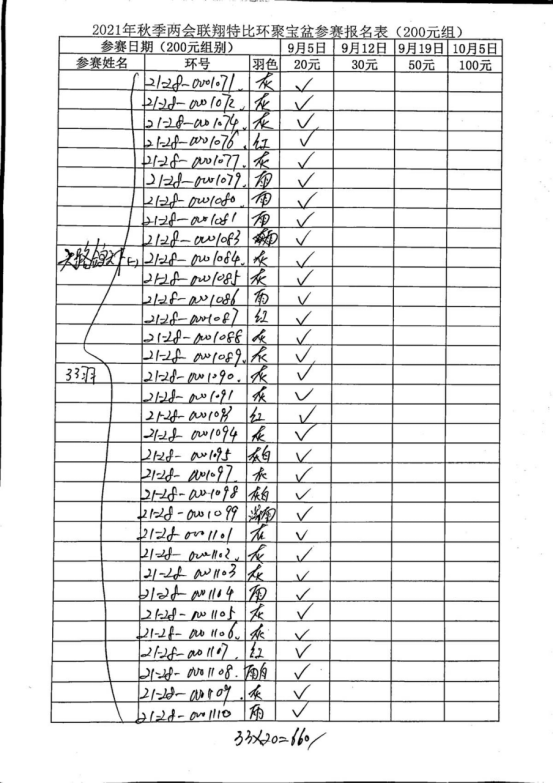 2021年秋季两会联翔特比环聚宝盆参赛报名表（200元组）
参赛日期（200元组别） 9月5日 9月12日 9月19日 10月5日
参赛姓名 环号 羽色 20元 30元 50元 100元
21-28-0001071 灰 ✓
21-28-0001072 灰 ✓
21-28-0001074 灰 ✓
21-28-0001076 红 ✓
21-28-0001077 灰 ✓
21-28-0001079 雨 ✓
21-28-0001080 雨 ✓
21-28-0001081 雨 ✓
21-28-0001083 ✓
21-28-0001084 灰 ✓
21-28-0001085 灰 ✓
21-28-0001086 雨 ✓
21-28-0001087 红 ✓
21-28-0001088 灰 ✓
21-28-0001089 灰 ✓
33羽 21-28-0001090 灰 ✓
21-28-0001091 灰 ✓
21-28-0001093 红 ✓
21-28-0001094 灰 ✓
21-28-0001095 灰白 ✓
21-28-0001097 灰 ✓
21-28-0001098 灰白 ✓
21-28-0001099 ✓
21-28-0001101 灰 ✓
21-28-0001102 灰 ✓
21-28-0001103 灰 ✓
21-28-0001104 雨 ✓
21-28-0001105 灰 ✓
21-28-0001106 灰 ✓
21-28-0001107 红 ✓
21-28-0001108 雨白 ✓
21-28-0001109 灰 ✓
21-28-0001110 雨 ✓
33×20=660/